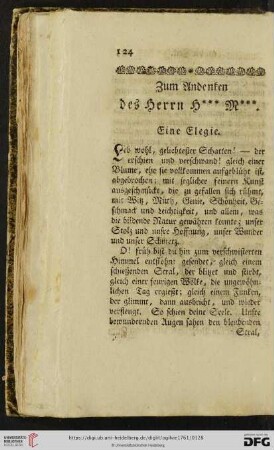 124
Zum Andenken
des Herrn H*** M***.
Eine Elegie.
Leb wohl, geliebtester Schatten! — der
erschien und verschwand! gleich einer
Blume, ehe sie vollkommen aufgeblüht ist,
abgebrochen; mit jeglicher feinern Kunst
ausgeschmückt, die zu gefallen sich rühmt,
mit Witz, Muth, Genie, Schönheit, Ge-
schmack und Leichtigkeit, und allem, was
die bildende Natur gewähren konnte; unser
Stolz und unsre Hoffnung, unser Wunder
und unser Schmerz.
O! früh bist du hin zum verschwisterten
Himmel entflohn: gesendet, gleich einem
schießenden Stral, der blitzet und stirbt,
gleich einer feurigen Wolke, die ungewöhn-
lichen Tag ergießt; gleich einem Funken,
der glimmt, dann ausbricht, und wieder
verfleugt. So schien deine Seele. Unsre
bewundernden Augen sahen den blendenden
Stral,
https://digi.ub.uni-heidelberg.de/diglit/
© Universitätsbibliothek Heidelberg
UNIVERSITÄTS-
BIBLIOTHEK
HEIDELBERG
gefördert durch die
DFG